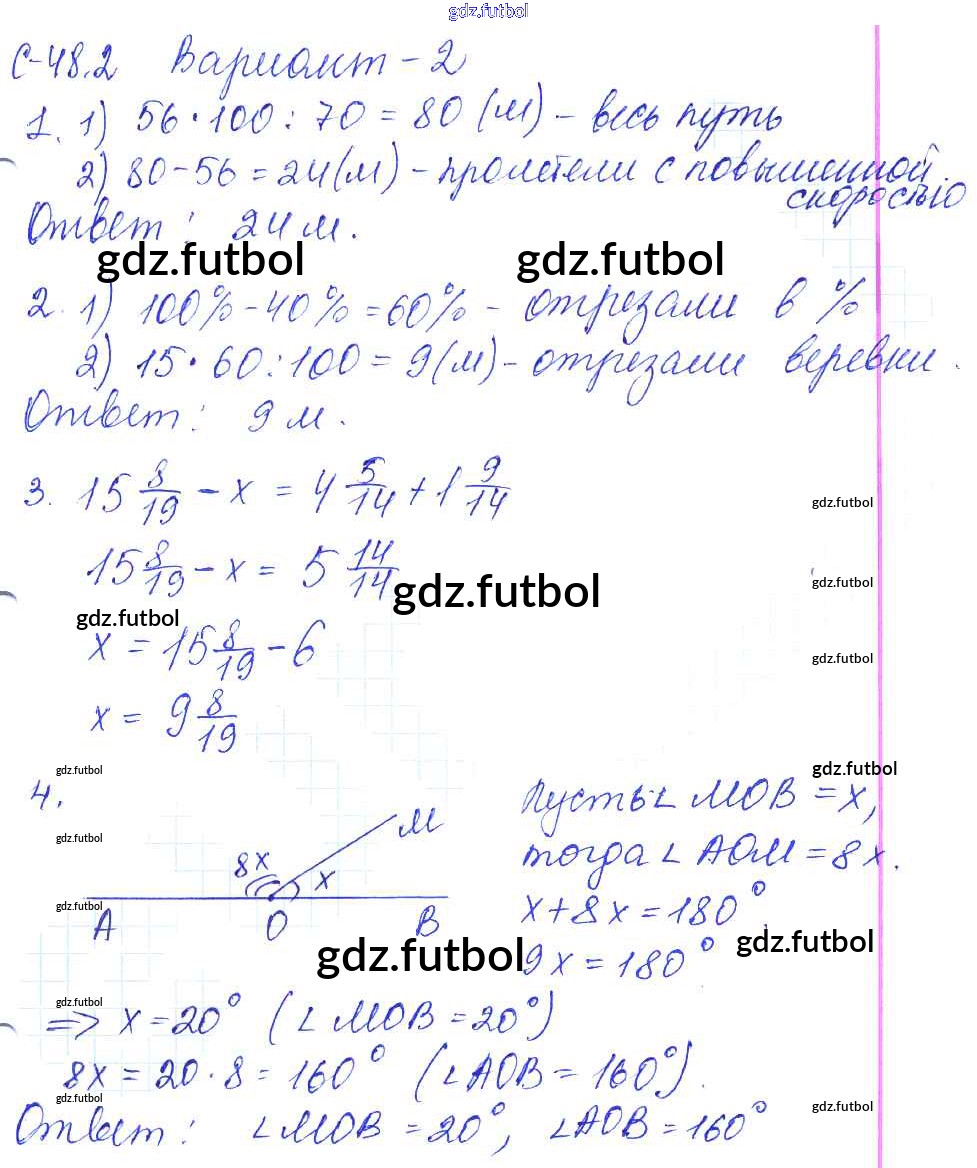 gdz.futbol
С-48.2 Вариант - 2
1. 1) 56 · 100 : 70 = 80 (м) - весь путь
2) 80 - 56 = 24 (м) - пролетели с повышенной
скоростью
Ответ: 24 м.
gdz.futbol gdz.futbol
2. 1) 100% - 40% = 60% - отрезали в %
2) 15 · 60 : 100 = 9 (м) - отрезали веревки.
Ответ: 9 м.
3. 15 8/19 - x = 4 5/14 + 1 9/14
gdz.futbol
15 8/19 - x = 5 14/14
gdz.futbol gdz.futbol
gdz.futbol
x = 15 8/19 - 6
gdz.futbol
x = 9 8/19
gdz.futbol gdz.futbol
4. Пусть ∠ MOB = x,
M
gdz.futbol
8x x
тогда ∠ AOM = 8x.
gdz.futbol
A O B
x + 8x = 180°,
gdz.futbol gdz.futbol
9x = 180°
gdz.futbol
=> x = 20° (∠ MOB = 20°)
8x = 20 · 8 = 160° (∠ AOB = 160°).
gdz.futbol gdz.futbol
Ответ: ∠ MOB = 20°, ∠ AOB = 160°